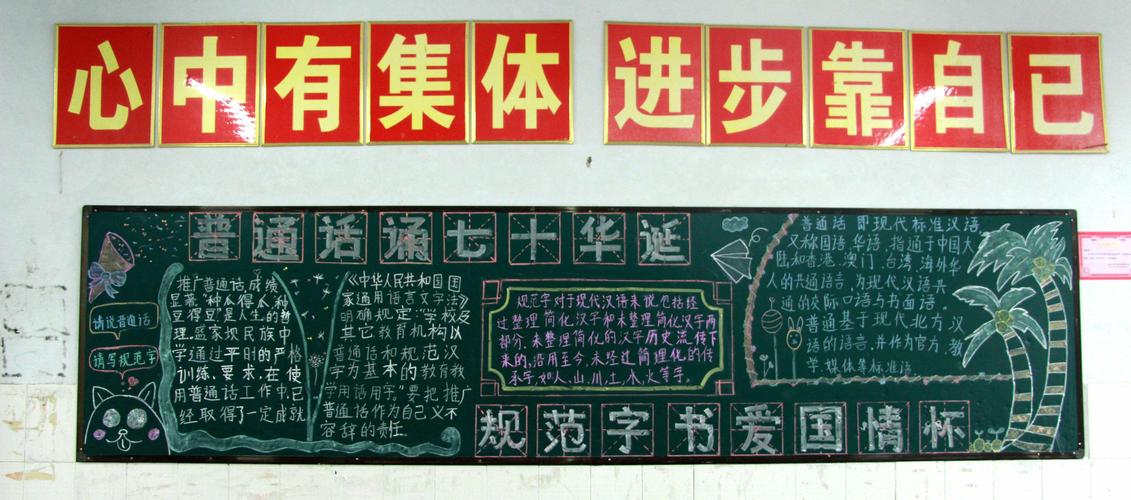 心中有集体 进步靠自己
普通话诵七十华诞
请说普通话
请写规范字
推广普通话成绩
显著."种瓜得瓜,种
豆得豆"是人生的哲
理.盛家坝民族中
学通过平时的严格
训练、要求,在使
用普通话工作中已
经取得了一定成就
《中华人民共和国国
家通用语言文字法》
明确规定:"学校及
其它教育机构以
普通话和规范汉
字为基本的教育教
学用语用字."要把推广
普通话作为自己义不
容辞的责任.
规范字对于现代汉语来说,包括经
过整理简化汉字和未整理简化汉字两
部分.未整理简化的汉字历史流传下
来的,沿用至今,未经过简理化的传
承字,如人、山、川、土、水、火等字。
普通话 即现代标准汉语
又称国语 华语 指通于中国大
陆和香港、澳门、台湾、海外华
人的共通语言,为现代汉语共
通的交际口语与书面语.
普通基于现代北方汉
语的语言,并作为官方、教
学、媒体等标准语.
规范字书爱国情怀